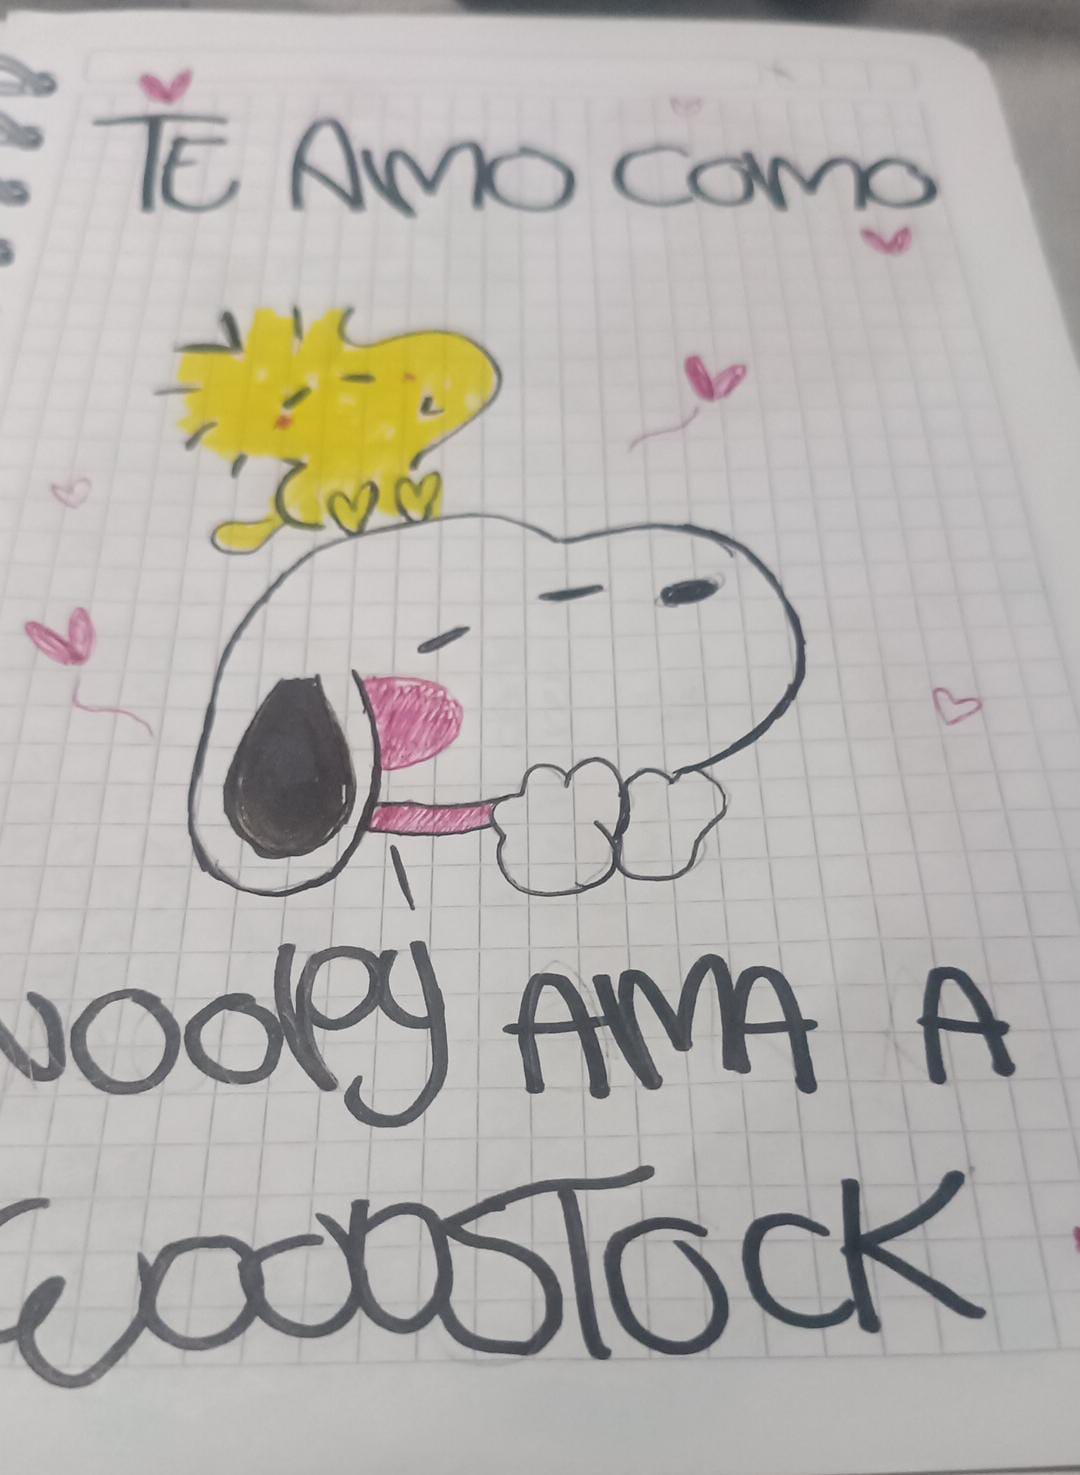 TE AMO COMO
NOOPY AMA A
WOODSTOCK